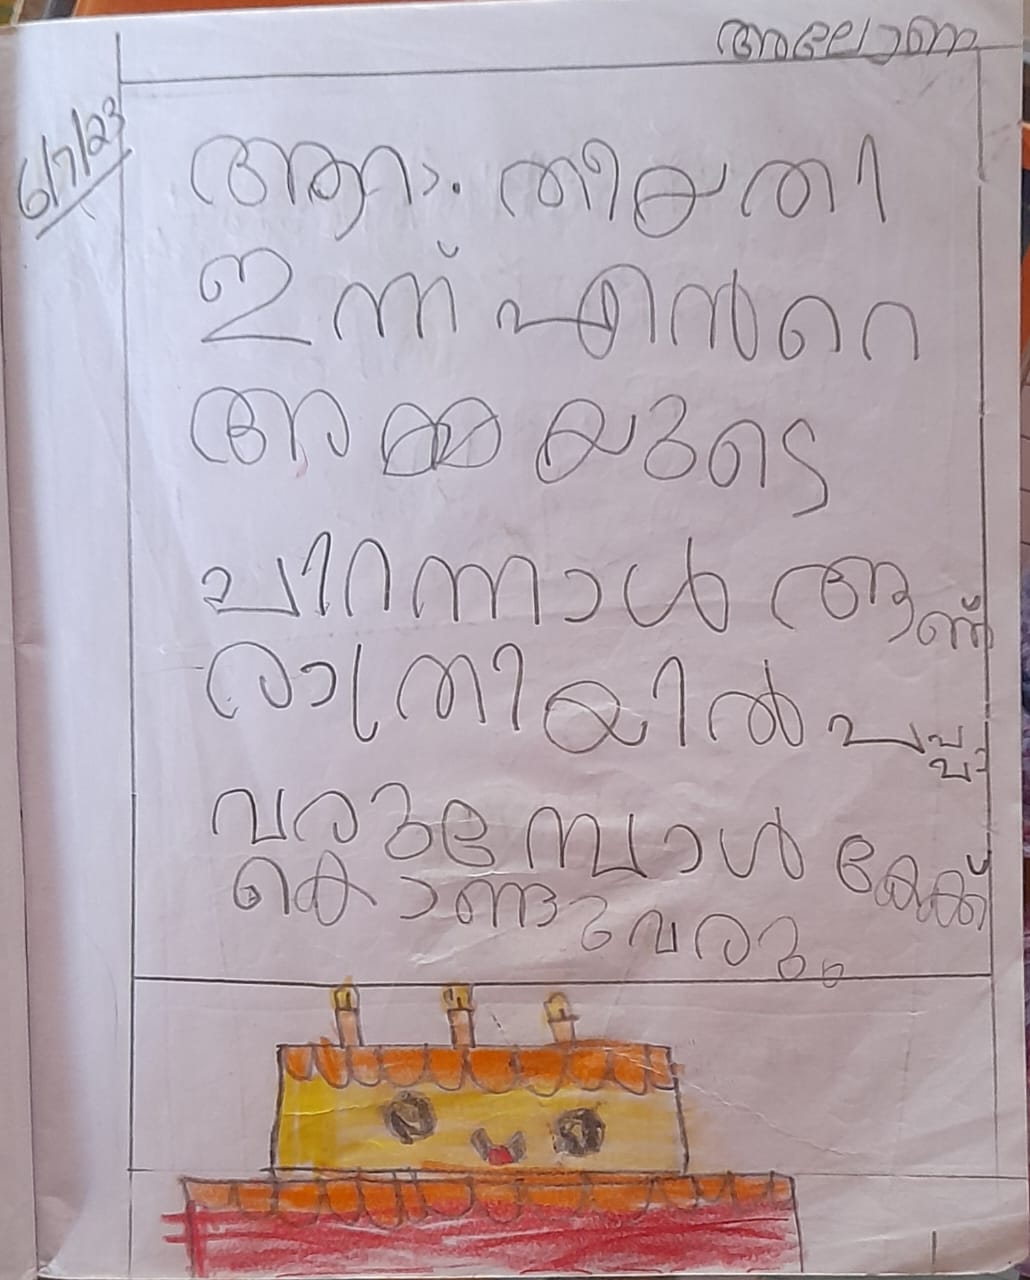 അലോണ
6/7/23
ആറാം തീയതി
ഇന്ന് എൻറെ
അമ്മയുടെ
പിറന്നാൾ ആണ്
രാത്രിയിൽ പപ്പ
വരുമ്പോൾ കേക്ക്
കൊണ്ടുവരും